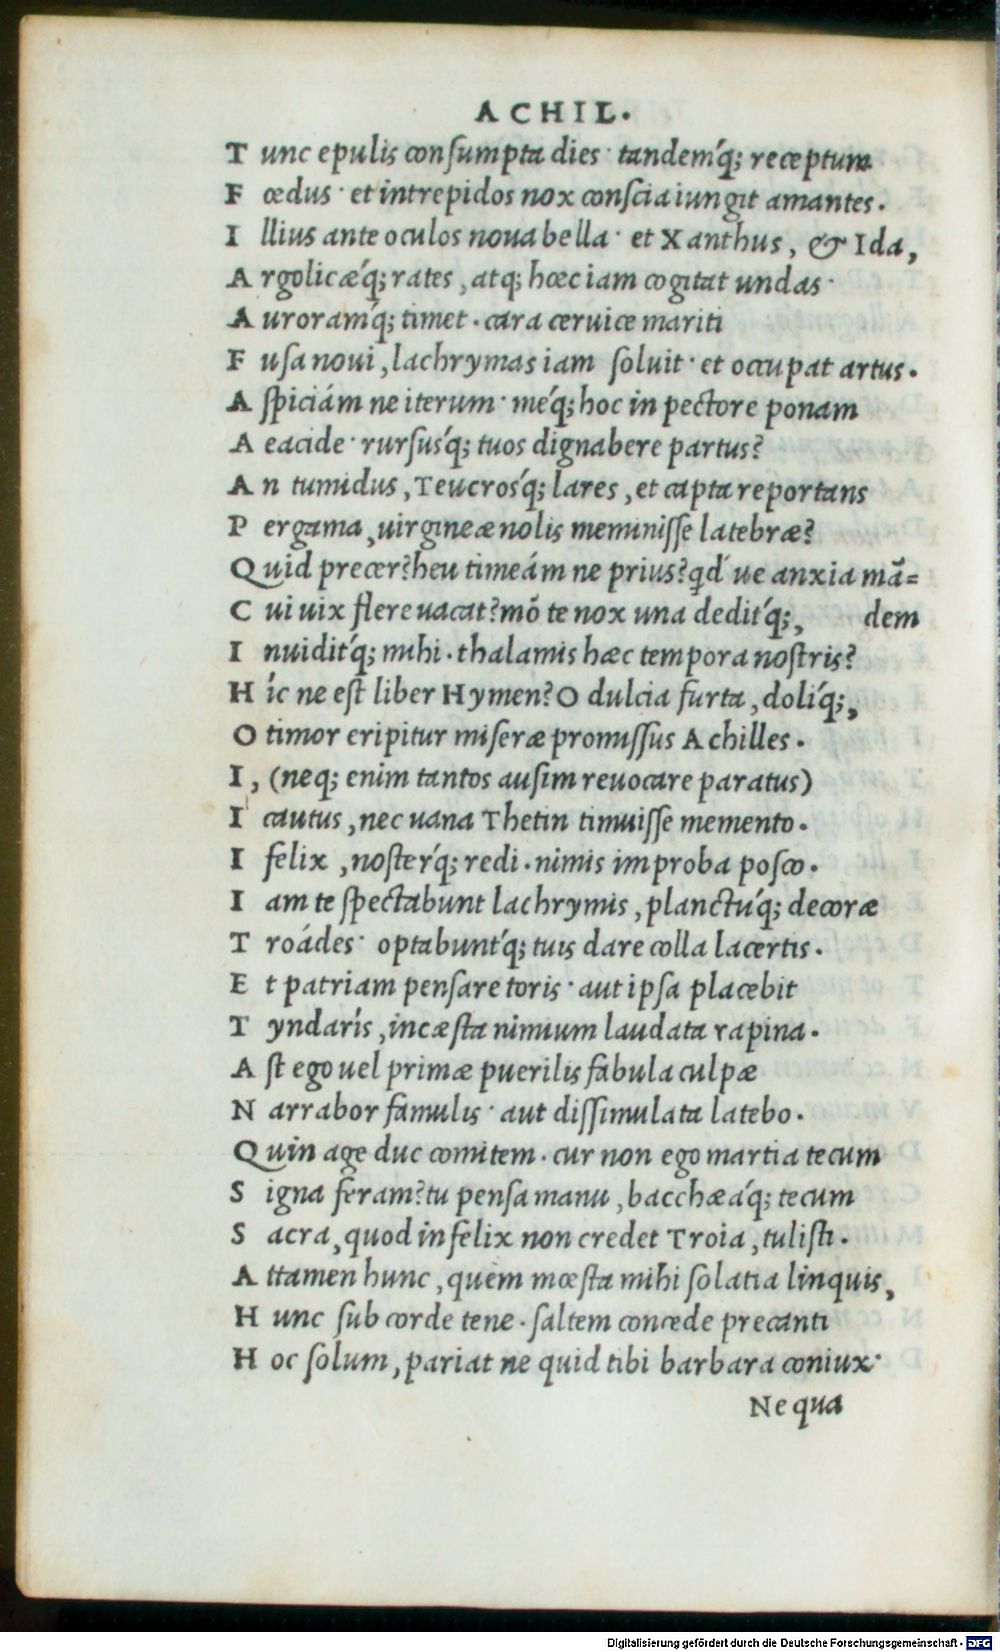 ACHIL.
T unc epulis consumpta dies· tandem´q; receptum
F œdus· et intrepidos nox conscia iungit amantes.
I llius ante oculos noua bella· et Xanthus, & Ida,
A rgolicæ´q; rates, atq; hœc iam cogitat undas·
A uroram´q; timet. cara ceruice mariti
F usa noui, lachrymas iam soluit· et occupat artus.
A spiciám ne iterum· mé´q; hoc in pectore ponam
A eacide· rursus´q; tuos dignabere partus?
A n tumidus, Teucros´q; lares, et capta reportans
P ergama, uirgineæ nolis meminisse latebræ?
Q uid precer? heu timeám ne prius? qd´ ue anxia mā=
C ui uix flere uacat? mō te nox una dedit´q;, dem
I nuidit´q; mihi. thalamis hæc tempora nostris?
H íc ne est liber Hymen? O dulcia furta, doli´q;,
O timor eripitur miseræ promissus Achilles.
I, (neq; enim tantos ausim reuocare paratus)
I cautus, nec uana Thetin timuisse memento.
I felix, noster´q; redi. nimis improba posco.
I am te spectabunt lachrymis, planctu´q; decoræ
T roádes· optabunt´q; tuis dare colla lacertis.
E t patriam pensare toris· aut ipsa placebit
T yndarís, incæsta nimium laudata rapina.
A st ego uel primæ puerilis fabula culpæ
N arrabor famulis· aut dissimulata latebo.
Q uin age duc comitem. cur non ego martia tecum
S igna feram? tu pensa manu, bacchæá´q; tecum
S acra, quod infelix non credet Troia, tulisti.
A ttamen hunc, quem mœsta mihi solatia linquis,
H unc sub corde tene. saltem concede precanti
H oc solum, pariat ne quid tibi barbara coniux·
Ne qua
Digitalisierung gefördert durch die Deutsche Forschungsgemeinschaft - DFG